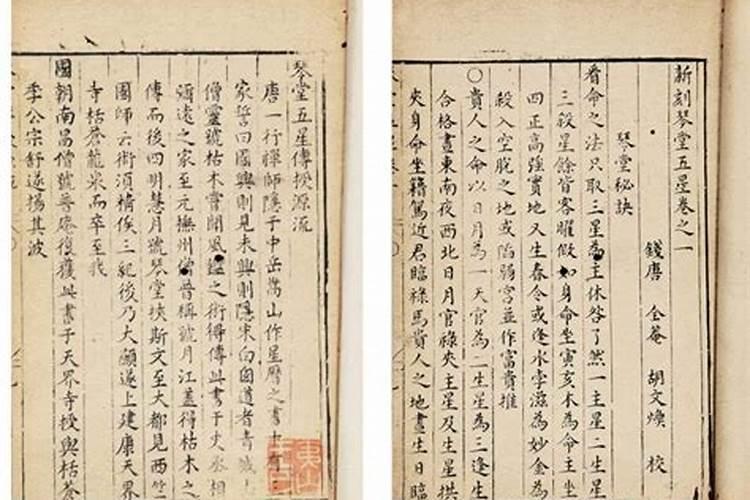 琴堂五星傳授源流
唐一行禪師隱于中岳嵩山作星曆之書
家誓曰國興則見未興則隱宋白園道者青城
僧靈號枯木嘗聞風鑑之術得傳此書于丈
彌遠之家至元撫州僧普稱號月江盖得枯木之
傳而後四明慧月號琴堂挾斯文至大都見西
國師云術須積俟三紀後乃大顯遂上建康天界
寺括蒼龍泉而卒至我
國朝南昌僧號普庵復獲此書于天界寺授與括蒼
季公宗舒遂揚其波
新刻琴堂五星卷之一
錢唐 全菴 胡文煥 校
琴堂秘訣
看命之法只取三星為主休咎了然一主星二生星
三殺星餘皆客曜假如身命坐寅亥木為命主坐
四正高強實地又生春令或逢水孛滋為妙金為
殺入空脫之地或陷弱宮並作富貴推
○貴人之命以日月為一天官為二生星為三逢生
合格晝東南夜西北日月官祿夾主星及生星拱
夾身命坐籍駕近君臨祿馬貴人之地晝生日臨